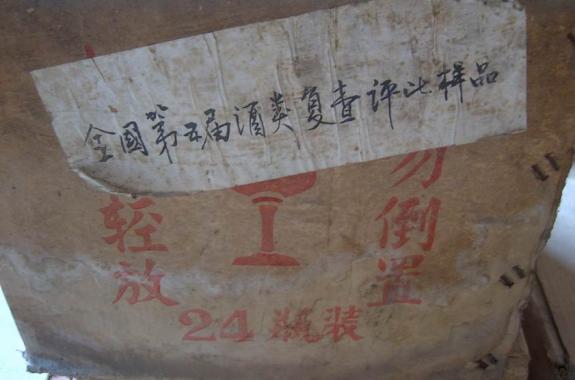 全国第五届酒类复查评比样品
轻放
勿倒置
24瓶装